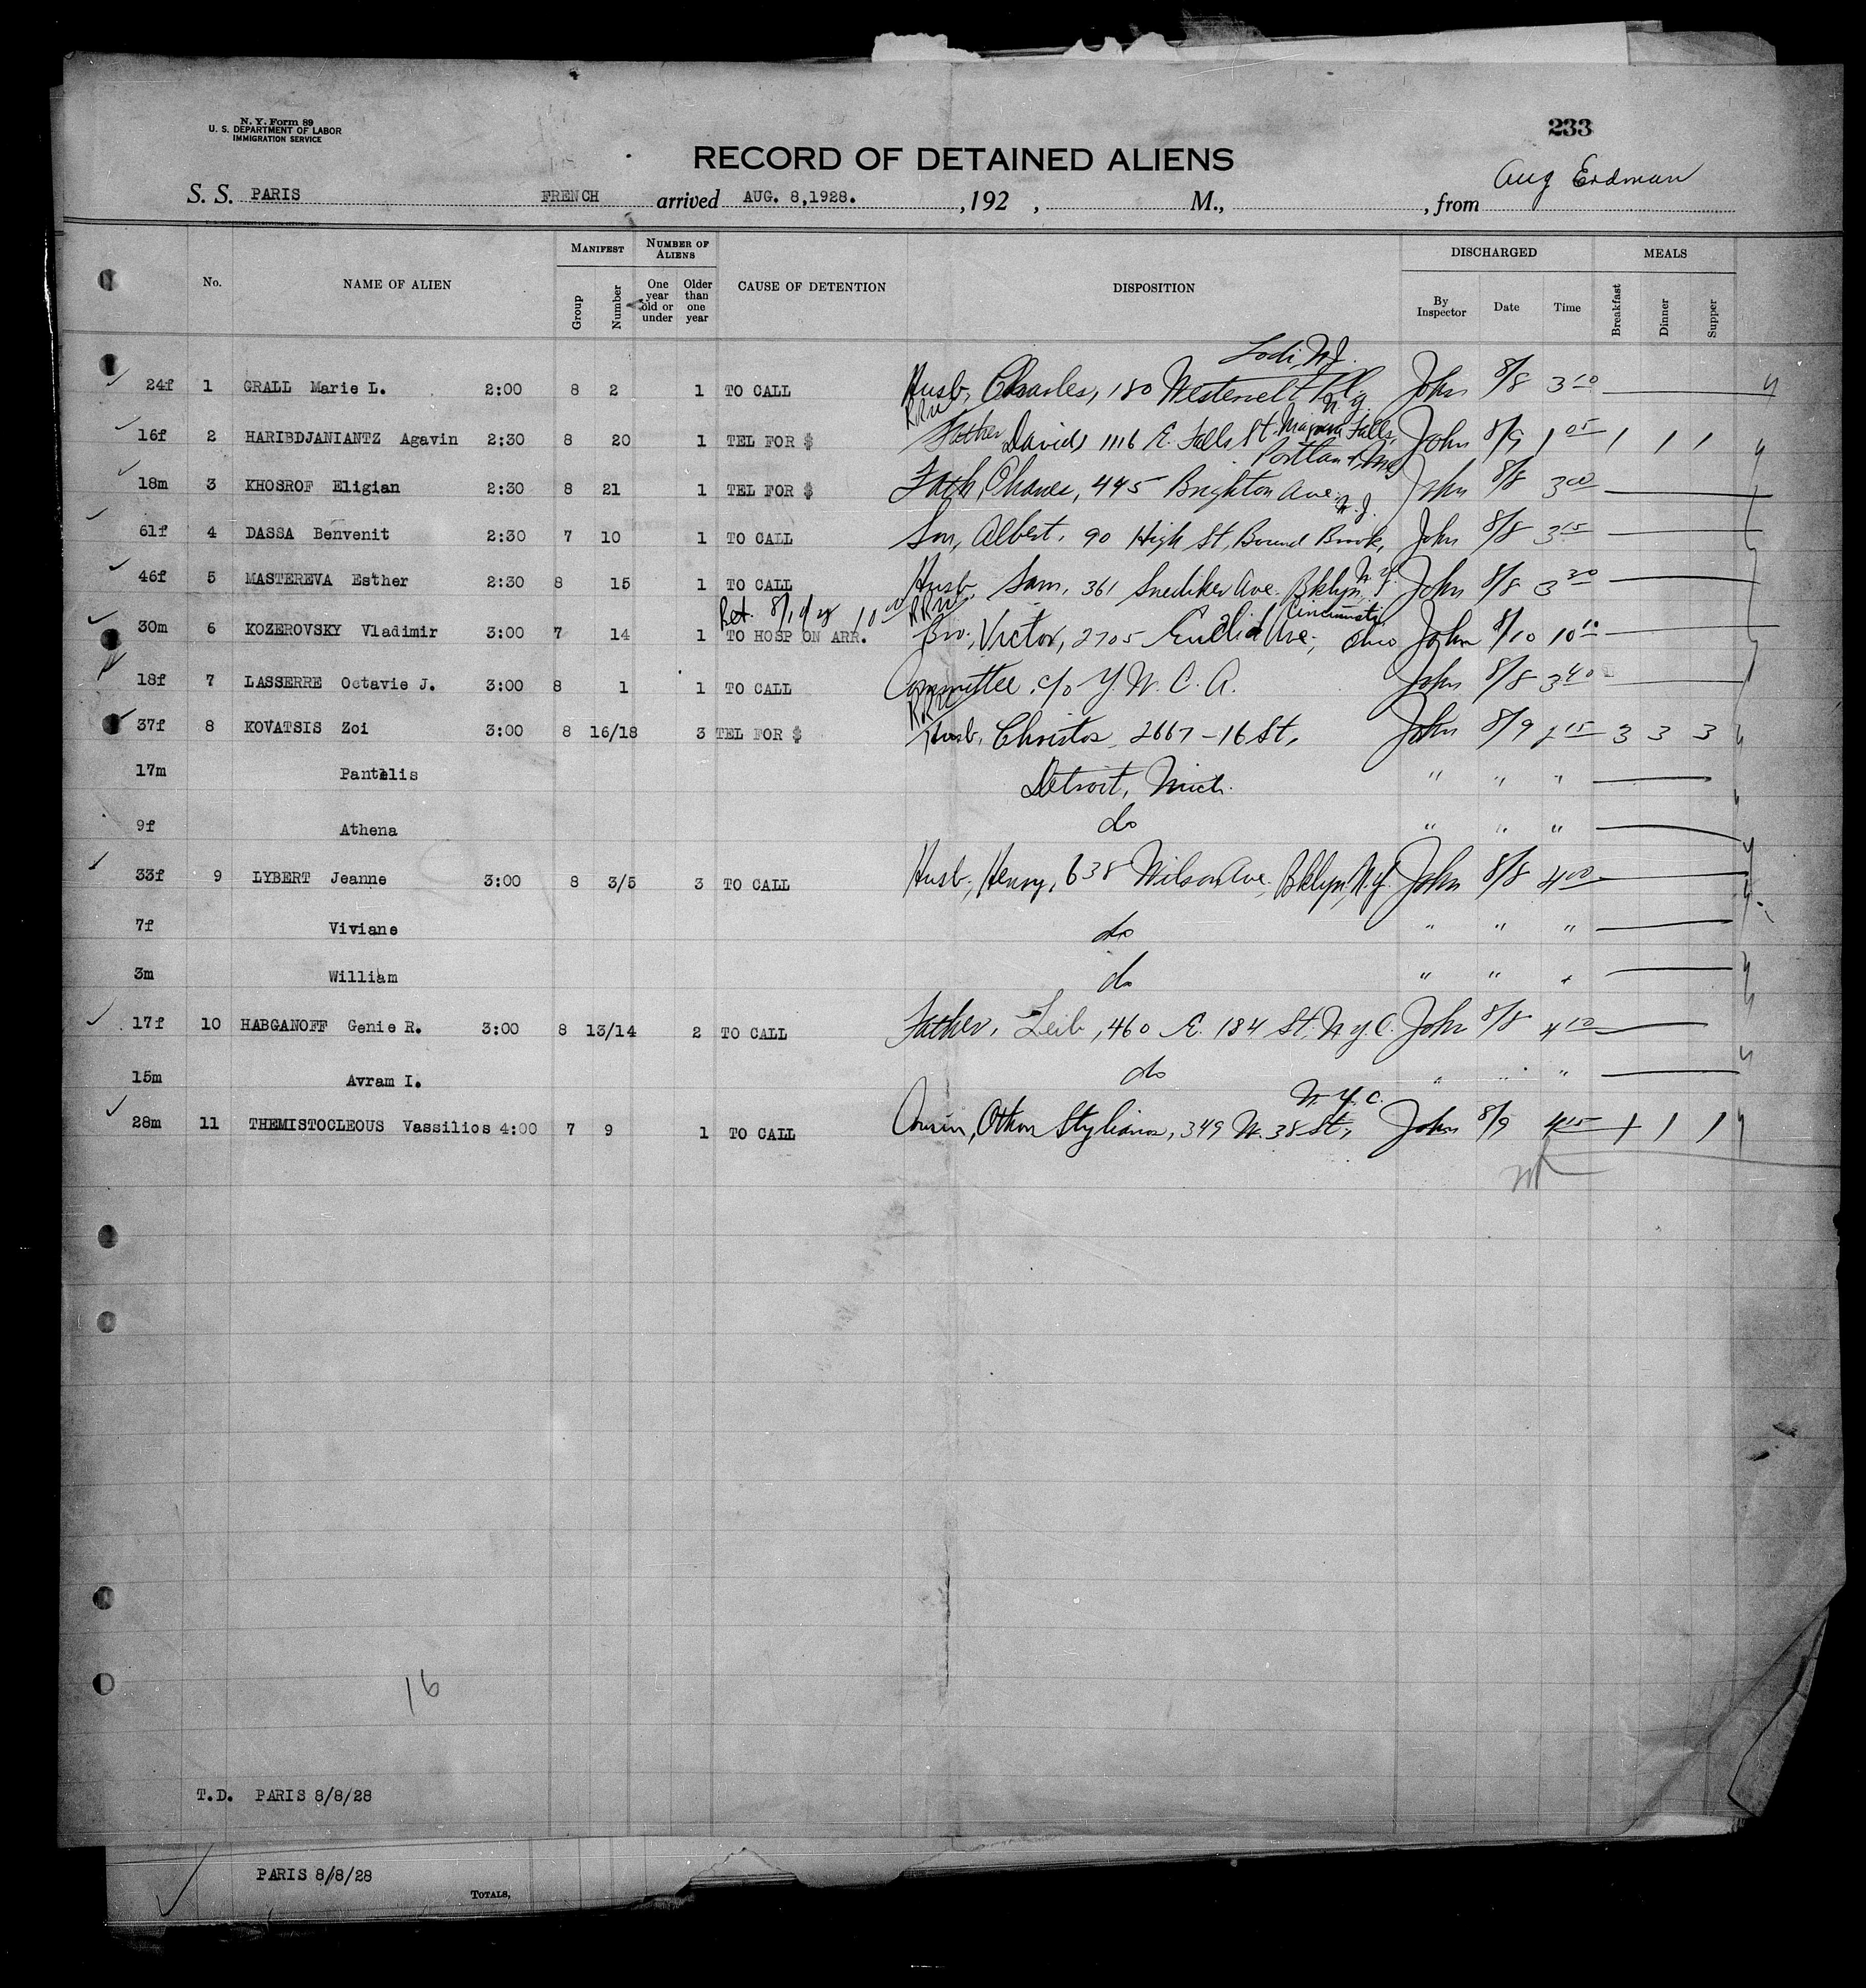 N. Y. Form 89
U. S. DEPARTMENT OF LABOR
IMMIGRATION SERVICE
233
RECORD OF DETAINED ALIENS
Aug Erdman
S. S. PARIS FRENCH arrived AUG. 8,1928. ,192 , M., , from
MANIFEST NUMBER OF ALIENS DISCHARGED MEALS
No. NAME OF ALIEN Group Number One year old or under Older than one year CAUSE OF DETENTION DISPOSITION By Inspector Date Time Breakfast Dinner Supper
Lodi, N.J.
24f 1 GRALL Marie L. 2:00 8 2 1 TO CALL Husb, Charles, 180 Westervelt Pl, John 8/8 3 10
N.Y.
16f 2 HARIBDJANIANTZ Agavin 2:30 8 20 1 TEL FOR $ Father David, 1116 E. Falls St. Niagara Falls, John 8/9 1 05 1 1 1
Portland, Me
18m 3 KHOSROF Eligian 2:30 8 21 1 TEL FOR $ Fath, 445 Brighton Ave. John 8/8 3 00
N.J.
61f 4 DASSA Benvenit 2:30 7 10 1 TO CALL Son, Albert, 90 High St, Bound Brook, John 8/8 3 15
N.Y.
46f 5 MASTEREVA Esther 2:30 8 15 1 TO CALL Husb. Sam, 361 Snediker Ave. Bklyn. John 8/8 3 20
Ret. 8/10/28 10 00 Cincinnati
30m 6 KOZEROVSKY Vladimir 3:00 7 14 1 TO HOSP ON ARR. Bro., Victor, 2705 Euclid Ave, Ohio John 8/10 10 10
18f 7 LASSERRE Octavie J. 3:00 8 1 1 TO CALL Committee c/o Y. W. C. A. John 8/8 3 40
37f 8 KOVATSIS Zoi 3:00 8 16/18 3 TEL FOR $ Husb, Christos, 2667-16 St, John 8/9 1 15 3 3 3
17m Pantelis Detroit, Mich. " " "
9f Athena do " " "
33f 9 LYBERT Jeanne 3:00 8 3/5 3 TO CALL Husb, Henry, 638 Wilson Ave, Bklyn, N.Y. John 8/8 4 00
7f Viviane do " " "
3m William do " " "
17f 10 HABGANOFF Genie R. 3:00 8 13/14 2 TO CALL Father, Leib, 460 E. 184 St. N.Y.C. John 8/8 4 10
15m Avram I. do " " "
N.Y.C.
28m 11 THEMISTOCLEOUS Vassilios 4:00 7 9 1 TO CALL Cousin, Othon Stylianos, 349 W. 38 St, John 8/9 4 15 1 1 1
16
T.D. PARIS 8/8/28
PARIS 8/8/28
TOTALS,